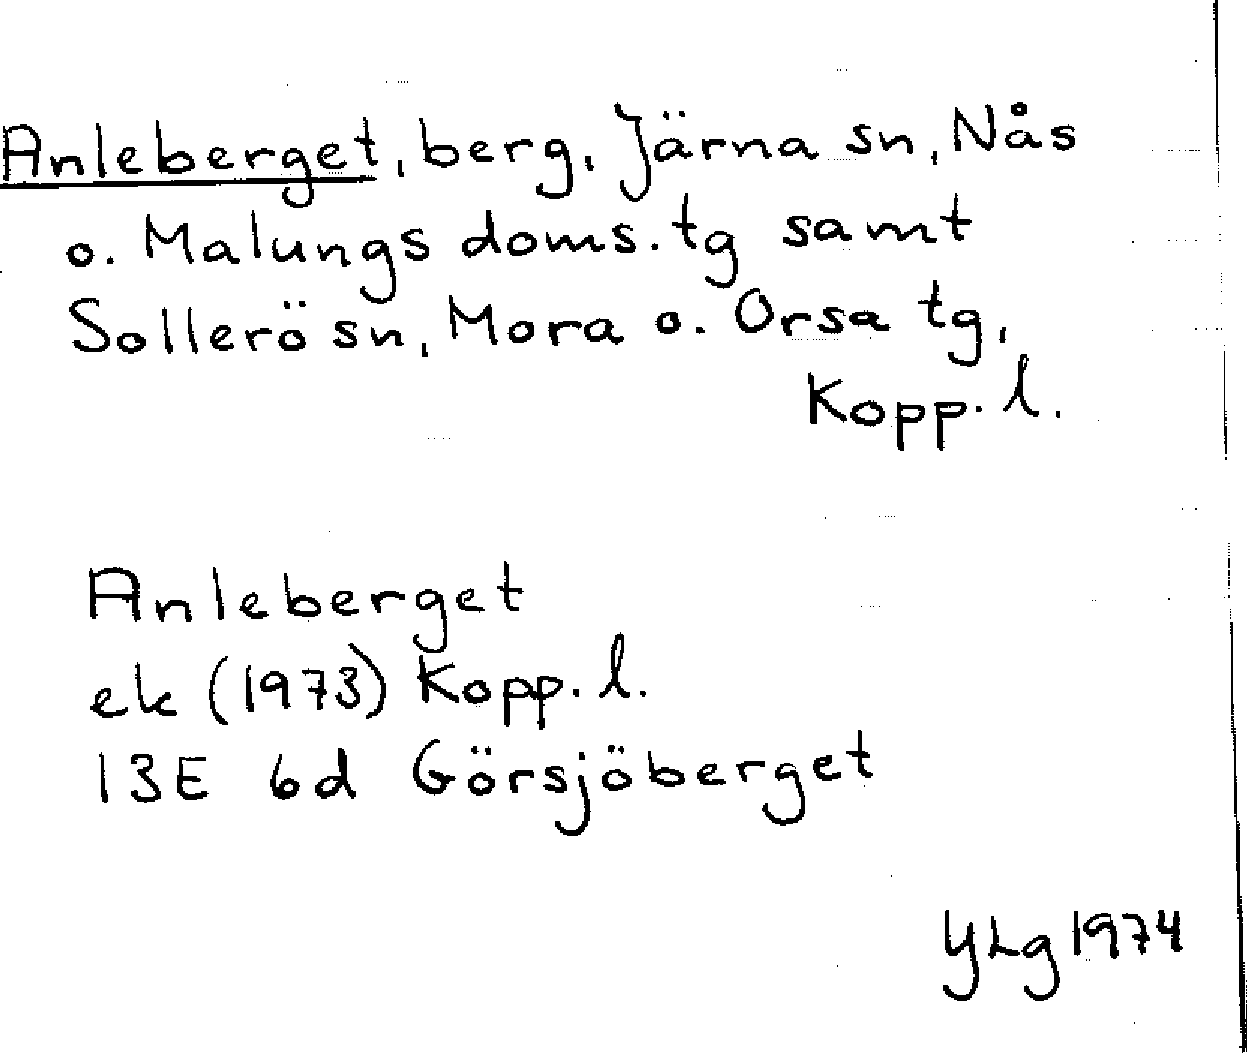 Anleberget, berg, Järna sn, Nås
o. Malungs doms. tg samt
Sollerö sn, Mora o. Orsa tg,
Kopp. l.
Anleberget
ek (1973) Kopp. l.
13E 6d Görsjöberget
YLg 1974